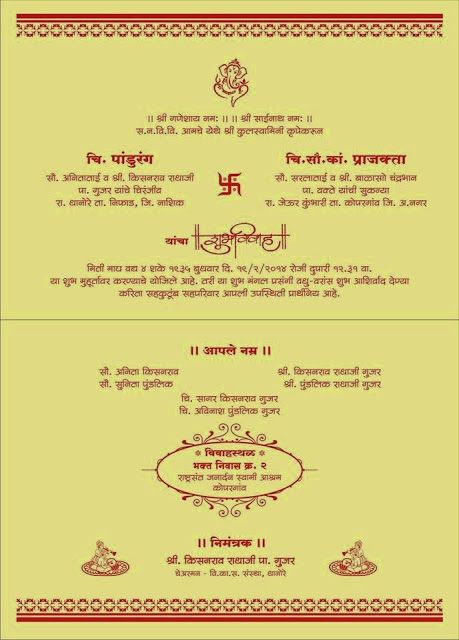 ।। श्री गणेशाय नमः ।। ।। श्री साईनाथ नमः ।।
स.न.वि.वि. आमचे येथे श्री कुलस्वामिनी कृपेकरून
चि. पांडुरंग
सौ. अनिताताई व श्री. किसनराव राधाजी
पा. गुजर यांचे चिरंजीव
रा. धानोरे ता. निफाड, जि. नाशिक
चि.सौ.कां. प्राजक्ता
सौ. सरलाताई व श्री. बाळासो चंद्रभान
पा. वक्ते यांची सुकन्या
रा. जेऊर कुंभारी ता. कोपरगांव जि. अ.नगर
यांचा शुभविवाह
मिती माघ वद्य ४ शके १९३५ बुधवार दि. १९/२/२०१४ रोजी दुपारी १२.३१ वा.
या शुभ मुहूर्तावर करण्याचे योजिले आहे. तरी या शुभ मंगल प्रसंगी वधु-वरांस शुभ आशिर्वाद देण्या
करिता सहकुटूंब सहपरिवार आपली उपस्थिती प्रार्थनिय आहे.
।। आपले नम्र ।।
सौ. अनिता किसनराव
श्री. किसनराव राधाजी गुजर
सौ. सुनिता पुंडलिक
श्री. पुंडलिक राधाजी गुजर
चि. सागर किसनराव गुजर
चि. अविनाश पुंडलिक गुजर
* विवाहस्थळ *
भक्त निवास क्र. २
राष्ट्रसंत जनार्दन स्वामी आश्रम
कोपरगांव
।। निमंत्रक ।।
श्री. किसनराव राधाजी पा. गुजर
चेअरमन - वि.का.स. संस्था, धानोरे